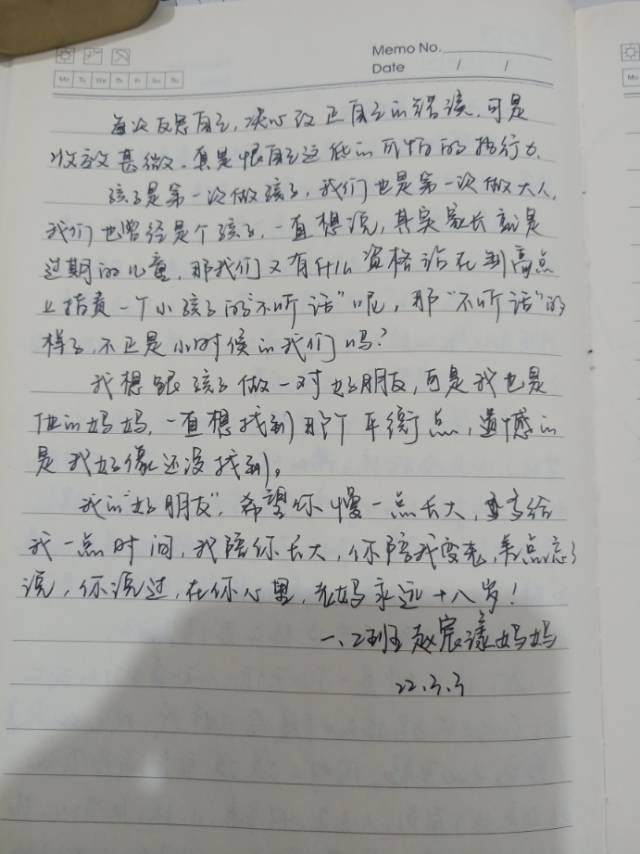 Memo No.
Date / /
Mo Tu We Th Fr Sa Su
每次反思自己,决心改正自己的错误,可是
收效甚微。真是恨自己这低的可怕的执行力。
孩子是第一次做孩子,我们也是第一次做大人,
我们也曾经是个孩子,一直想说,其实家长就是
过期的儿童,那我们又有什么资格站在制高点
上指责一个小孩子的“不听话”呢,那“不听话”的
样子,不正是小时候的我们吗?
我想跟孩子做一对好朋友,可是我也是
他的妈妈,一直想找到那个平衡点,遗憾的
是我好像还没找到。
我的“好朋友”,希望你慢一点长大,多给
我一点时间,我陪你长大,你陪我变老,差点忘了
说,你说过,在你心里,老妈永远十八岁!
一、2班 赵宸漾妈妈
22.3.3